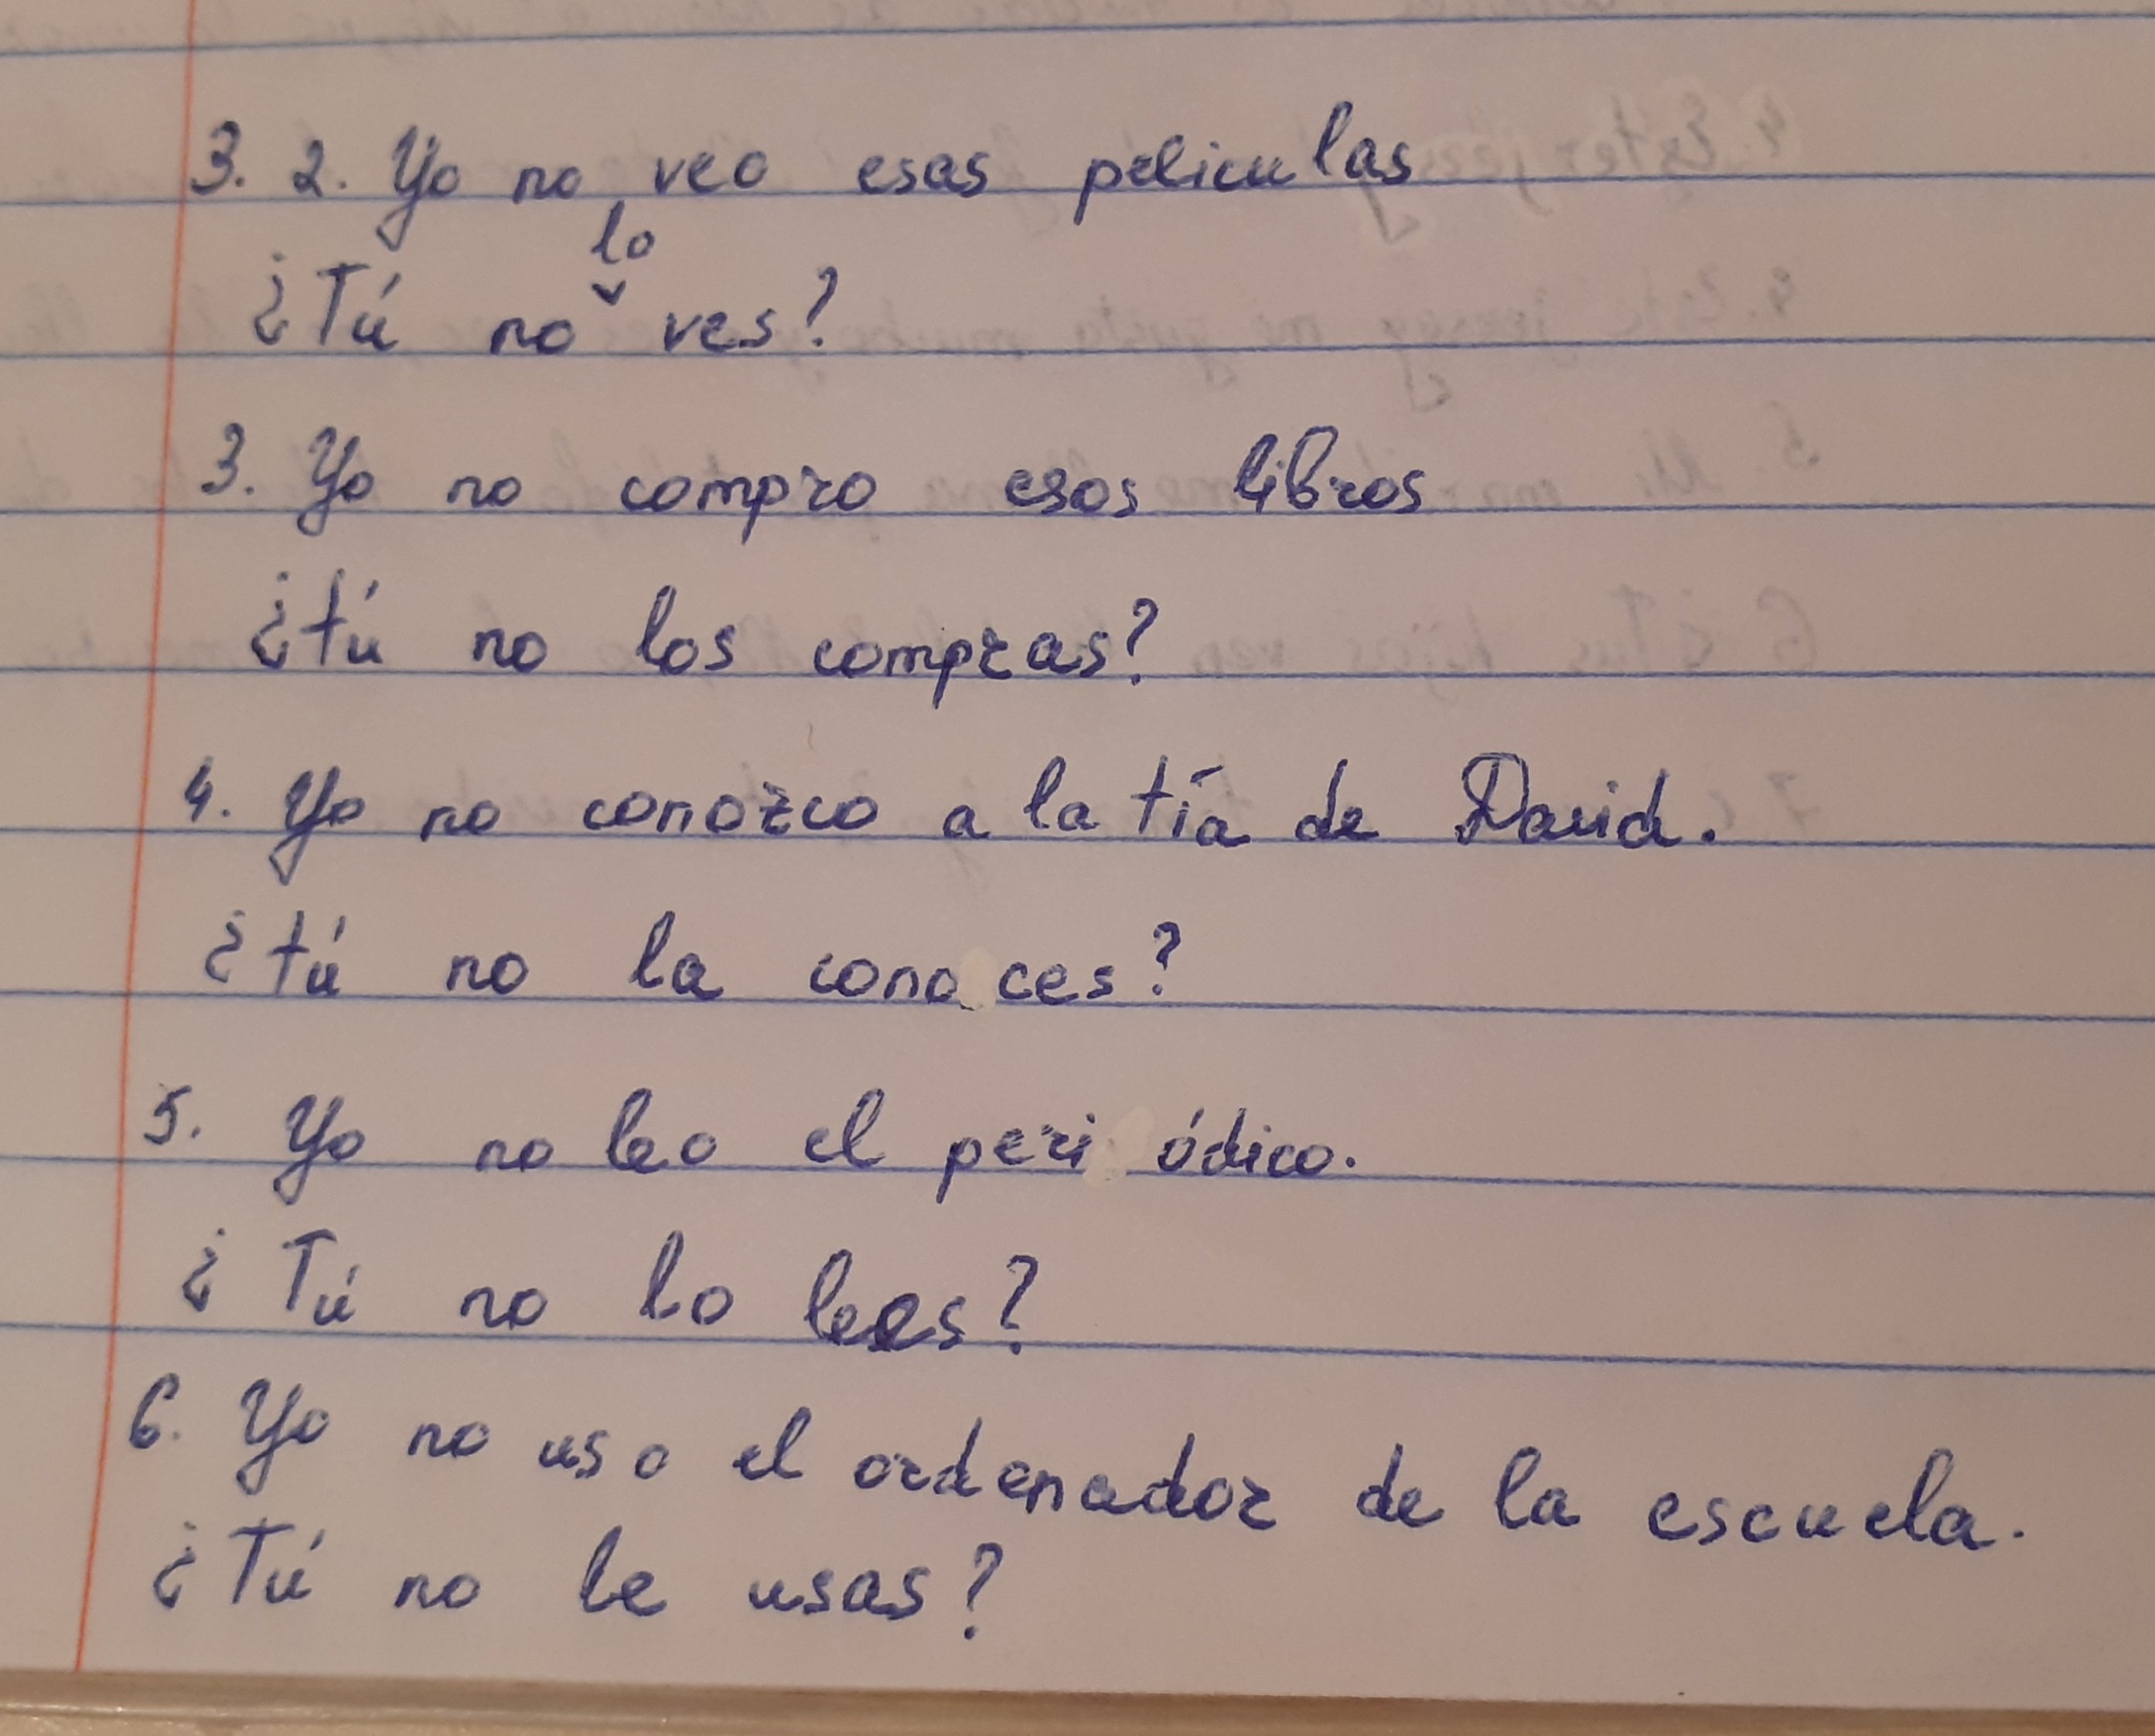 3. 2. Yo no veo esas peliculas
¿Tú no lo ves?
3. Yo no compro esos libros
¿tú no los compras?
4. Yo no conozco a la tía de David.
¿tú no la conoces?
5. Yo no leo el periódico.
¿Tú no lo lees?
6. Yo no uso el ordenador de la escuela.
¿Tú no le usas?